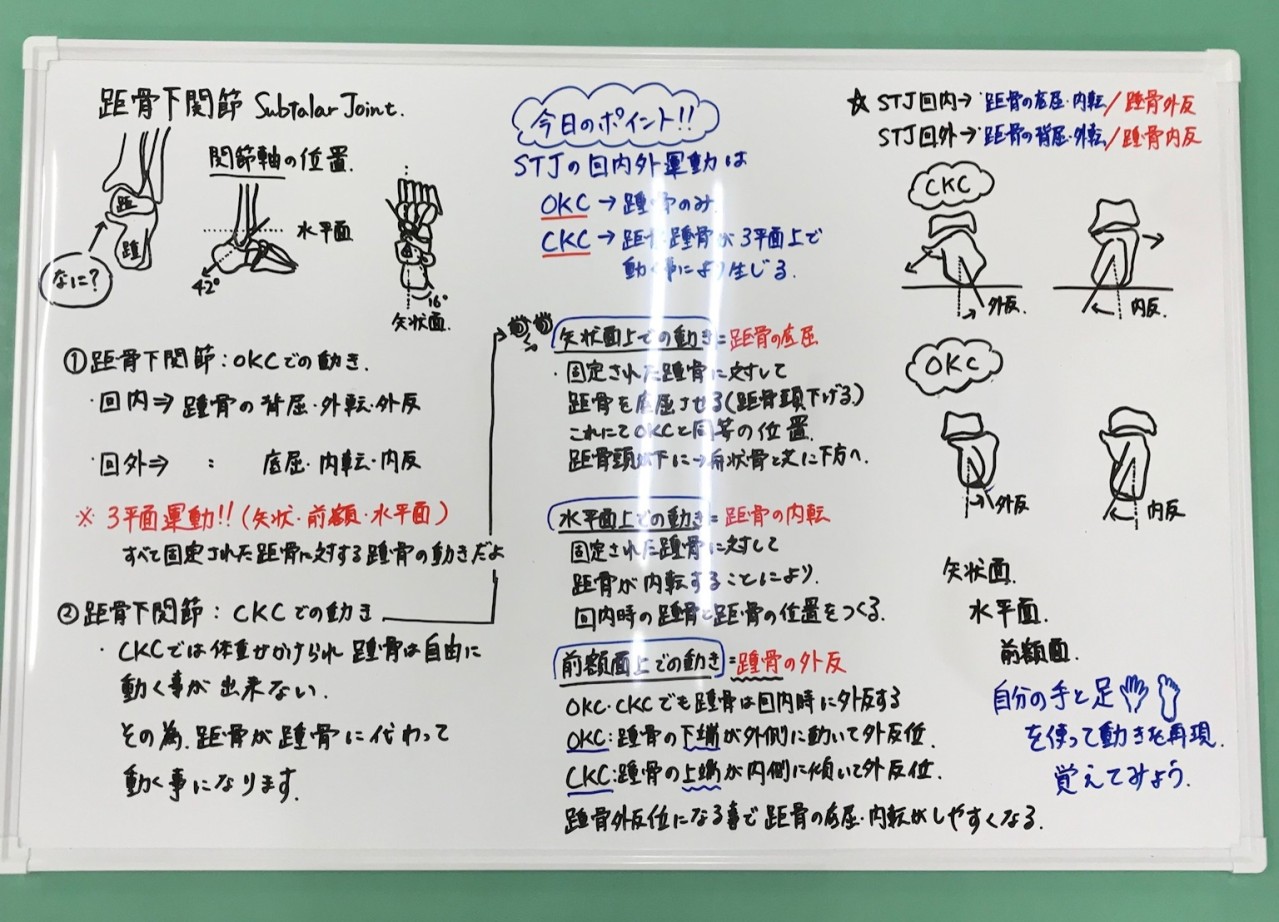 距骨下関節 Subtalar Joint.
関節軸の位置.
距
踵
なに?
水平面
42°
16°
矢状面.
①距骨下関節:OKCでの動き.
・回内⇒踵骨の背屈・外転・外反
・回外⇒ : 底屈・内転・内反
※3平面運動!!(矢状・前額・水平面)
すべて固定された距骨に対する踵骨の動きだよ
②距骨下関節:CKCでの動き
・CKCでは体重がかけられ踵骨は自由に
動く事が出来ない.
その為.距骨が踵骨に代わって
動く事になります.
今日のポイント!!
STJの回内外運動は
OKC→踵骨のみ.
CKC→距骨・踵骨が3平面上で
動く事により生じる.
矢状面上での動き=距骨の底屈
・固定された踵骨に対して
距骨を底屈させる(距骨頭下げる.)
これにてOKCと同等の位置.
距骨頭が下に→舟状骨と共に下方へ.
水平面上での動き=距骨の内転
固定された踵骨に対して
距骨が内転することにより.
回内時の踵骨と距骨の位置をつくる.
前額面上での動き=踵骨の外反
OKC・CKCでも踵骨は回内時に外反する
OKC:踵骨の下端が外側に動いて外反位.
CKC:踵骨の上端が内側に傾いて外反位.
踵骨外反位になる事で距骨の底屈・内転がしやすくなる.
☆STJ回内→距骨の底屈・内転/踵骨外反
STJ回外→距骨の背屈・外転/踵骨内反
CKC
外反.
内反.
OKC
外反
内反.
矢状面.
水平面.
前額面.
自分の手と足
を使って動きを再現.
覚えてみよう.